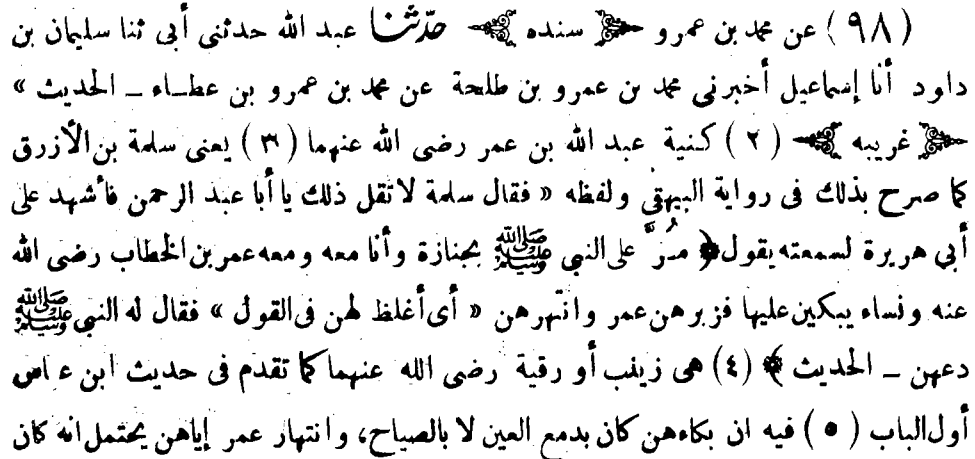 (٩٨) عن محمد بن عمرو ﴿ سنده ﴾ حدّثنا عبد الله حدثنى أبى ثنا سليمان بن
داود أنا إسماعيل أخبرنى محمد بن عمرو بن طلحة عن محمد بن عمرو بن عطاء ــ الحديث »
﴿ غريبه ﴾ (٢) كنية عبد الله بن عمر رضى الله عنهما (٣) يعنى سلمة بن الأزرق
كما صرح بذلك فى رواية البيهقى ولفظه « فقال سلمة لا تقل ذلك يا أبا عبد الرحمن فأشهد على
أبى هريرة لسمعته يقول ﴿ مُرَّ على النبى ﷺ بجنازة وأنا معه ومعه عمر بن الخطاب رضى الله
عنه ونساء يبكين عليها فزبرهن عمر وانتهرهن « أى أغلظ لهن فى القول » فقال له النبى ﷺ
دعهن ــ الحديث ﴾ (٤) هى زينب أو رقية رضى الله عنهما كما تقدم فى حديث ابن عباس
أول الباب (٥) فيه ان بكاءهن كان بدمع العين لا بالصياح، وانتهار عمر إياهن يحتمل انه كان